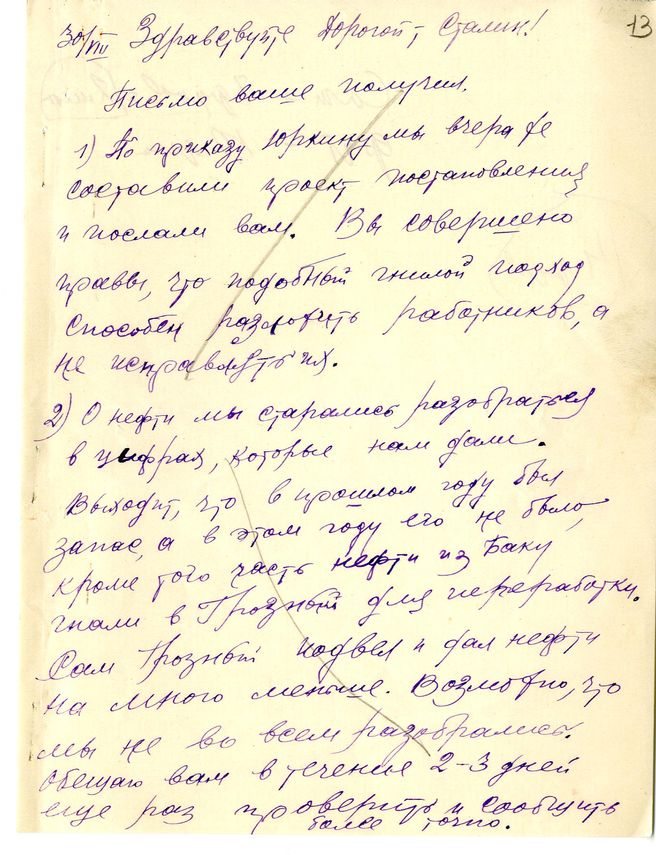 13
30/VIII Здравствуйте Дорогой т. Сталин!
Письмо ваше получил.
1) По приказу Юркину мы вчера же
составили проект постановления
и послали вам. Вы совершено
правы, что подобный гнилой подход
способен разложить работников, а
не исправлять их.
2) О нефти мы старались разобраться
в цифрах, которые нам дали.
Выходит, что в прошлом году был
запас, а в этом году его не было,
кроме того часть нефти из Баку
гнали в Грозный для переработки.
Сам Грозный подвел и дал нефти
на много меньше. Возможно, что
мы не во всем разобрались.
Обещаю вам в течение 2-3 дней
еще раз проверить и сообщить
более точно.